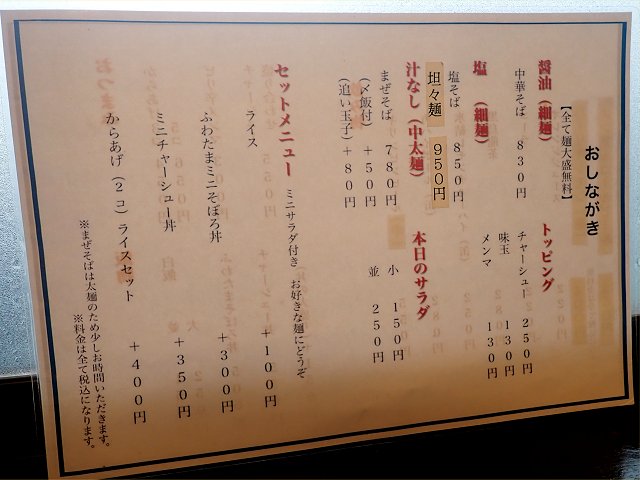 おしながき
【全て麺大盛無料】
醤油（細麺）
中華そば ８３０円
塩（細麺）
塩そば ８５０円
坦々麺 ９５０円
汁なし（中太麺）
まぜそば ７８０円
（〆飯付）＋５０円
（追い玉子）＋８０円
トッピング
チャーシュー ２５０円
味玉 １３０円
メンマ １３０円
本日のサラダ
小 １５０円
並 ２５０円
セットメニュー ミニサラダ付き お好きな麺にどうぞ
ライス ＋１００円
ふわたまミニそぼろ丼 ＋３００円
ミニチャーシュー丼 ＋３５０円
からあげ（２コ）ライスセット ＋４００円
※まぜそばは太麺のため少しお時間いただきます。
※料金は全て税込になります。